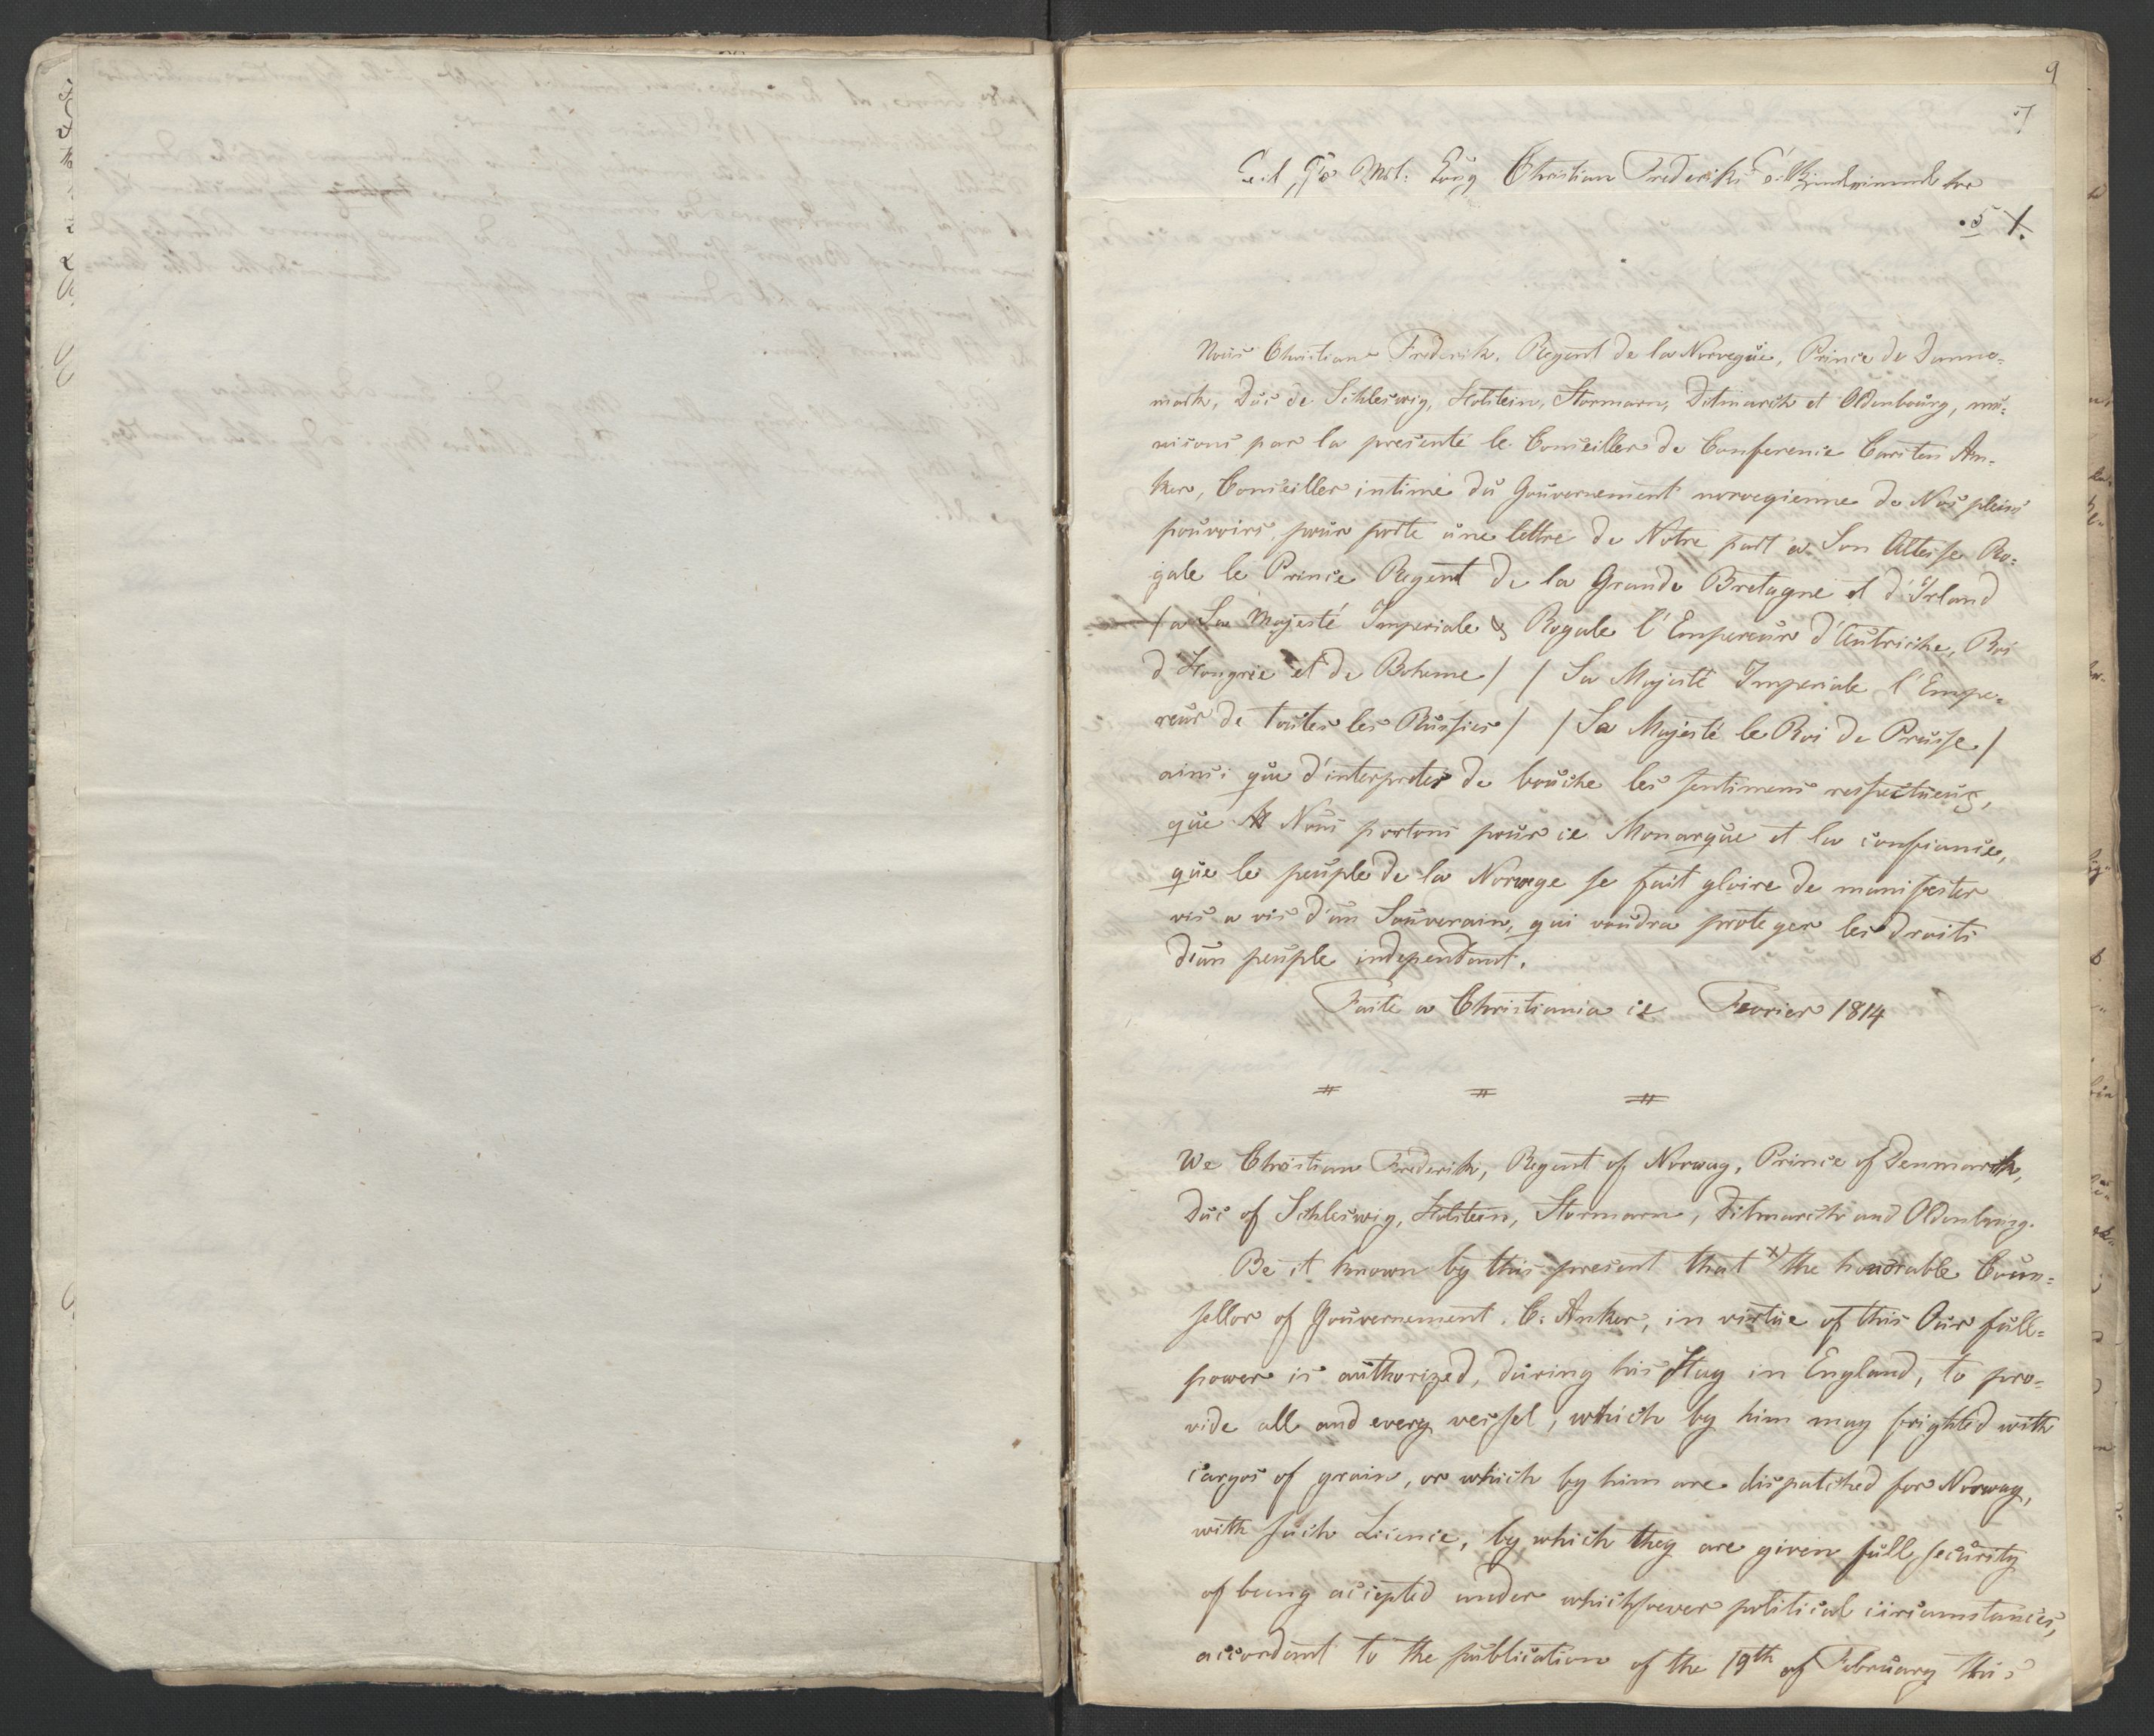 9
Christian Frederiks
5
Nous Christian Frederik, Regent de la Norvegue, Prince de Danne=
mark, Duc de Schleswig, Holstein, Stormarn, Ditmarsch et Oldenbourg, mu=
nisons par la presente le Conseiller de Conference Carsten An=
ker, Conseiller intime du Gouvernement norvegienne de Nos pleins
pouvoirs, pour porte une lettre de Notre part a Son Altesse Ro=
yale le Prince Regent de la Grande Bretagne et d'Irland
/a Sa Majesté Imperiale & Royale l'Empereur d'Autriche, Roi
d'Hongrie et de Boheme/ /Sa Majesté Imperiale l'Empe=
reur de toutes les Russies/ /Sa Majesté le Roi de Prusse/
ainsi que d'interpreter de bouche les sentimens respectueux,
que Nous portons pour ce Monarque et la confiance,
que le peuple de la Norvege se fait gloire de manifester
vis a vis d'un Souverain, qui voudra proteger les droits
d'un peuple independant.
Faite a Christiania ce Fevrier 1814
We Christian Frederik, Regent of Norway, Prince of Denmark,
Duc of Schleswig, Holstein, Stormarn, Ditmarsch and Oldenburg.
Be it known by this present that x) the honorable Coun=
sellor of Gouvernement C: Anker, in virtue of this Our full=
power is authorized, during his Stay in England, to pro=
vide all and every vessel, which by him may frighted with
cargos of grain, or which by him are dispatched for Norway,
with such Licence, by which they are given full security
of being accepted under whichsoever political circumstances,
accordant to the publication of the 19th of February this